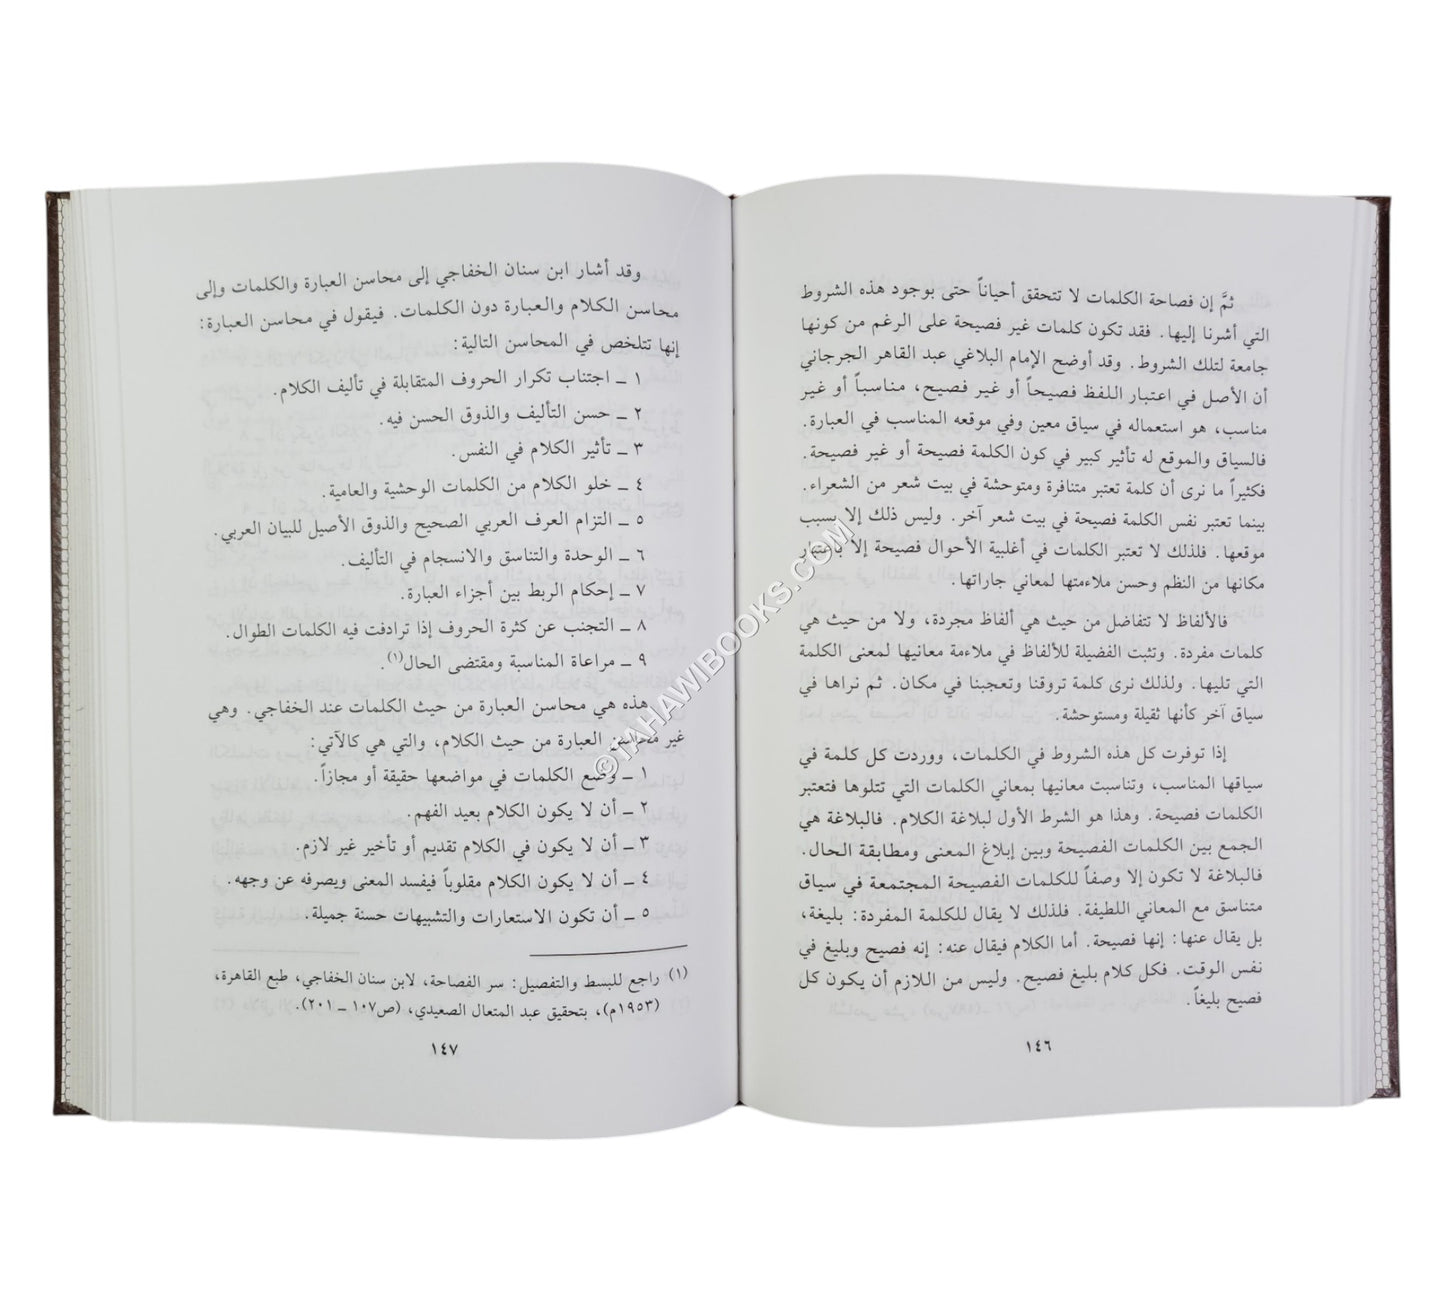 ثمَّ إن فصاحة الكلمات لا تتحقق أحياناً حتى بوجود هذه الشروط
التي أشرنا إليها. فقد تكون كلمات غير فصيحة على الرغم من كونها
جامعة لتلك الشروط. وقد أوضح الإمام البلاغي عبد القاهر الجرجاني
أن الأصل في اعتبار اللفظ فصيحاً أو غير فصيح، مناسباً أو غير
مناسب، هو استعماله في سياق معين وفي موقعه المناسب في العبارة.
فالسياق والموقع له تأثير كبير في كون الكلمة فصيحة أو غير فصيحة.
فكثيراً ما نرى أن كلمة تعتبر متنافرة ومتوحشة في بيت شعر من الشعراء.
بينما تعتبر نفس الكلمة فصيحة في بيت شعر آخر. وليس ذلك إلا بسبب
موقعها. فلذلك لا تعتبر الكلمات في أغلبية الأحوال فصيحة إلا باعتبار
مكانها من النظم وحسن ملاءمتها لمعاني جاراتها.
فالألفاظ لا تتفاضل من حيث هي ألفاظ مجردة، ولا من حيث هي
كلمات مفردة. وتثبت الفضيلة للألفاظ في ملاءمة معانيها لمعنى الكلمة
التي تليها. ولذلك نرى كلمة تروقنا وتعجبنا في مكان. ثم نراها في
سياق آخر كأنها ثقيلة ومستوحشة.
إذا توفرت كل هذه الشروط في الكلمات، ووردت كل كلمة في
سياقها المناسب، وتناسبت معانيها بمعاني الكلمات التي تتلوها فتعتبر
الكلمات فصيحة. وهذا هو الشرط الأول لبلاغة الكلام. فالبلاغة هي
الجمع بين الكلمات الفصيحة وبين إبلاغ المعنى ومطابقة الحال.
فالبلاغة لا تكون إلا وصفاً للكلمات الفصيحة المجتمعة في سياق
متناسق مع المعاني اللطيفة. فلذلك لا يقال للكلمة المفردة: بليغة،
بل يقال عنها: إنها فصيحة. أما الكلام فيقال عنه: إنه فصيح وبليغ في
نفس الوقت. فكل كلام بليغ فصيح. وليس من اللازم أن يكون كل
فصيح بليغاً.
١٤٦
وقد أشار ابن سنان الخفاجي إلى محاسن العبارة والكلمات وإلى
محاسن الكلام والعبارة دون الكلمات. فيقول في محاسن العبارة:
إنها تتلخص في المحاسن التالية:
١ ـ اجتناب تكرار الحروف المتقابلة في تأليف الكلام.
٢ ـ حسن التأليف والذوق الحسن فيه.
٣ ـ تأثير الكلام في النفس.
٤ ـ خلو الكلام من الكلمات الوحشية والعامية.
٥ ـ التزام العرف العربي الصحيح والذوق الأصيل للبيان العربي.
٦ ـ الوحدة والتناسق والانسجام في التأليف.
٧ ـ إحكام الربط بين أجزاء العبارة.
٨ ـ التجنب عن كثرة الحروف إذا ترادفت فيه الكلمات الطوال.
٩ ـ مراعاة المناسبة ومقتضى الحال(١).
هذه هي محاسن العبارة من حيث الكلمات عند الخفاجي. وهي
غير محاسن العبارة من حيث الكلام، والتي هي كالآتي:
١ ـ وضع الكلمات في مواضعها حقيقة أو مجازاً.
٢ ـ أن لا يكون الكلام بعيد الفهم.
٣ ـ أن لا يكون في الكلام تقديم أو تأخير غير لازم.
٤ ـ أن لا يكون الكلام مقلوباً فيفسد المعنى ويصرفه عن وجهه.
٥ ـ أن تكون الاستعارات والتشبيهات حسنة جميلة.
(١) راجع للبسط والتفصيل: سر الفصاحة، لابن سنان الخفاجي، طبع القاهرة،
(١٩٥٣م)، بتحقيق عبد المتعال الصعيدي، (ص١٠٧ ـ ٢٠١).
١٤٧
©TAHAWIBOOKS.COM